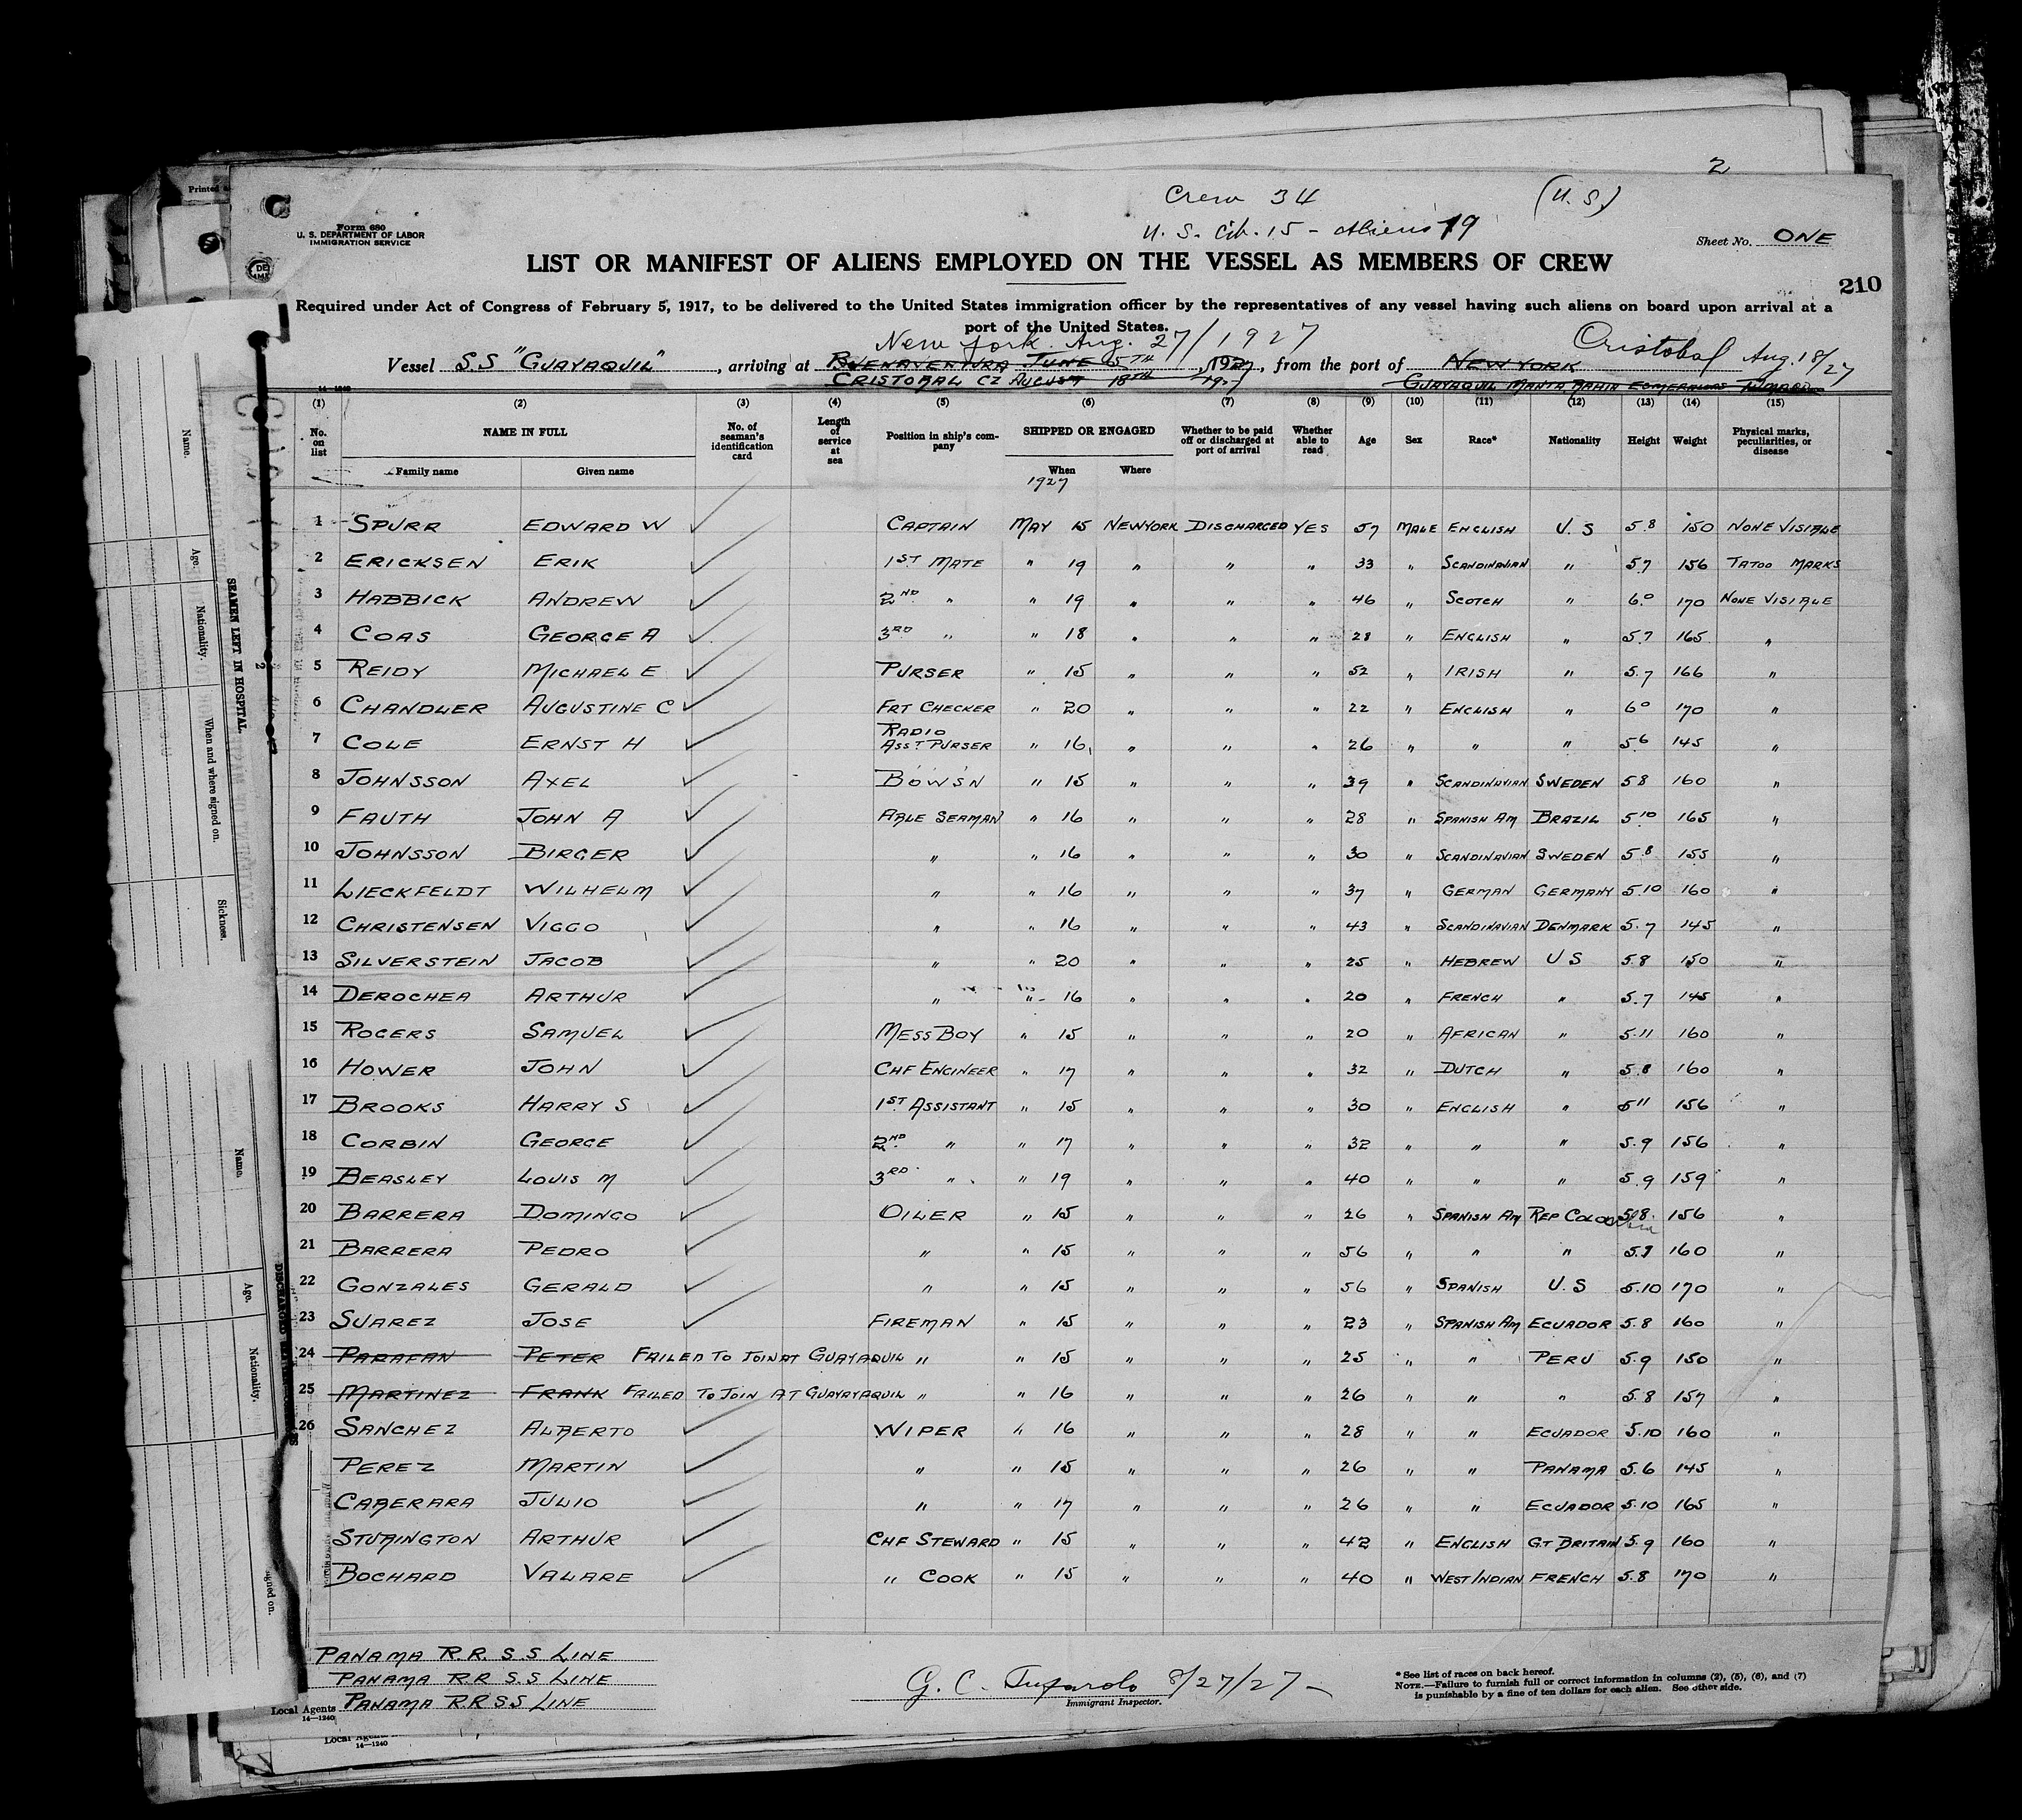 2
Crew 34 (U.S)
U.S. Cit. 15 - Aliens 19
Form 680
U. S. DEPARTMENT OF LABOR
IMMIGRATION SERVICE
Sheet No. ONE
LIST OR MANIFEST OF ALIENS EMPLOYED ON THE VESSEL AS MEMBERS OF CREW
210
Required under Act of Congress of February 5, 1917, to be delivered to the United States immigration officer by the representatives of any vessel having such aliens on board upon arrival at a
port of the United States.
New York Aug. 27/1927 Cristobal Aug. 18/27
Vessel S.S "GUAYAQUIL", arriving at BUENAVENTURA JUNE 5TH, 1927, from the port of NEW YORK
CRISTOBAL CZ AUGUST 18TH 1927 GUAYAQUIL MANTA BAHIA ESMERALDAS TUMACO
14-1240
(1) (2) (3) (4) (5) (6) (7) (8) (9) (10) (11) (12) (13) (14) (15)
No. on list NAME IN FULL No. of seaman's identification card Length of service at sea Position in ship's company SHIPPED OR ENGAGED Whether to be paid off or discharged at port of arrival Whether able to read Age Sex Race* Nationality Height Weight Physical marks, peculiarities, or disease
Family name Given name When Where
1927
1 SPURR EDWARD W CAPTAIN MAY 15 NEWYORK DISCHARGED YES 57 MALE ENGLISH U.S 5.8 150 NONE VISIBLE
2 ERICKSEN ERIK 1ST MATE " 19 " " " 33 " SCANDINAVIAN " 5.7 156 TATOO MARKS
3 HABBICK ANDREW 2ND " " 19 " " " 46 " SCOTCH " 6.0 170 NONE VISIBLE
4 COAS GEORGE A 3RD " " 18 " " " 28 " ENGLISH " 5.7 165 "
5 REIDY MICHAEL E PURSER " 15 " " " 52 " IRISH " 5.7 166 "
6 CHANDLER AUGUSTINE C FRT CHECKER " 20 " " " 22 " ENGLISH " 6.0 170 "
7 COLE ERNST H RADIO ASST PURSER " 16 " " " 26 " " " 5.6 145 "
8 JOHNSSON AXEL BOWS'N " 15 " " " 39 " SCANDINAVIAN SWEDEN 5.8 160 "
9 FAUTH JOHN A ABLE SEAMAN " 16 " " " 28 " SPANISH AM BRAZIL 5.10 165 "
10 JOHNSSON BIRGER " " 16 " " " 30 " SCANDINAVIAN SWEDEN 5.8 155 "
11 LIECKFELDT WILHELM " " 16 " " " 37 " GERMAN GERMANY 5.10 160 "
12 CHRISTENSEN VIGGO " " 16 " " " 43 " SCANDINAVIAN DENMARK 5.7 145 "
13 SILVERSTEIN JACOB " " 20 " " " 25 " HEBREW U S 5.8 150 "
14 DEROCHEA ARTHUR " " 16 " " " 20 " FRENCH " 5.7 145 "
15 ROGERS SAMUEL MESS BOY " 15 " " " 20 " AFRICAN " 5.11 160 "
16 HOWER JOHN CHF ENGINEER " 17 " " " 32 " DUTCH " 5.8 160 "
17 BROOKS HARRY S 1ST ASSISTANT " 15 " " " 30 " ENGLISH " 5 11 156 "
18 CORBIN GEORGE 2ND " " 17 " " " 32 " " " 5.9 156 "
19 BEASLEY LOUIS M 3RD " " 19 " " " 40 " " " 5.9 159 "
20 BARRERA DOMINGO OILER " 15 " " " 26 " SPANISH AM REP COLOMBIA 5.8 156 "
21 BARRERA PEDRO " " 15 " " " 56 " " " 5.9 160 "
22 GONZALES GERALD " " 15 " " " 56 " SPANISH U.S 5.10 170 "
23 SUAREZ JOSE FIREMAN " 15 " " " 23 " SPANISH AM ECUADOR 5.8 160 "
24 PARAFAN PETER FAILED TO JOIN AT GUAYAQUIL " " 15 " " " 25 " " PERU 5.9 150 "
25 MARTINEZ FRANK FAILED TO JOIN AT GUAYAYAQUIL " " 16 " " " 26 " " " 5.8 157 "
26 SANCHEZ ALBERTO WIPER " 16 " " " 28 " " ECUADOR 5.10 160 "
PEREZ MARTIN " " 15 " " " 26 " " PANAMA 5.6 145 "
CABERARA JULIO " " 17 " " " 26 " " ECUADOR 5.10 165 "
STURINGTON ARTHUR CHF STEWARD " 15 " " " 42 " ENGLISH GT BRITAIN 5.9 160 "
BOCHARD VALARE " COOK " 15 " " " 40 " WEST INDIAN FRENCH 5.8 170 "
PANAMA R.R. S.S LINE
PANAMA R.R S.S LINE
Local Agents PANAMA R.R S S LINE
14—1240
G. C. Tuparolo 8/27/27
Immigrant Inspector.
* See list of races on back hereof.
NOTE.—Failure to furnish full or correct information in columns (2), (5), (6), and (7)
is punishable by a fine of ten dollars for each alien. See other side.
14—1240
Name.
Age.
Nationality.
When and where signed on.
Sickness.
SEAMEN LEFT IN HOSPITAL
Name.
Age.
Nationality.